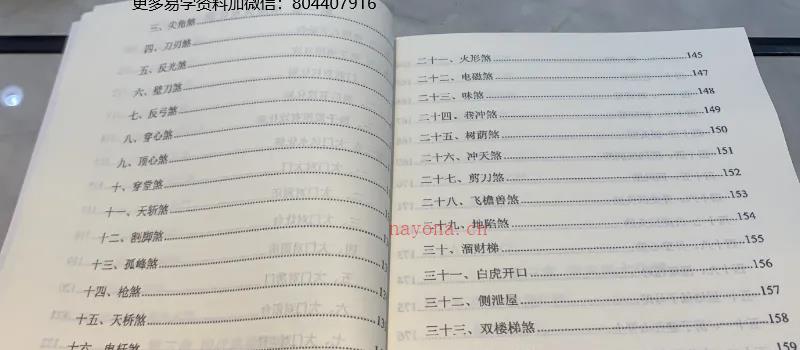 更多易学资料加微信：804407916
三、尖角煞
四、刀刃煞
五、反光煞
六、壁刀煞
七、反弓煞
八、穿心煞
九、顶心煞
十、穿堂煞
十一、天斩煞
十二、割脚煞
十三、孤峰煞
十四、枪煞
十五、天桥煞
二十一、火形煞 145
二十二、电磁煞 147
二十三、味煞 148
二十四、巷冲煞 149
二十五、树荫煞 150
二十六、冲天煞 151
二十七、剪刀煞 152
二十八、飞檐兽煞 153
二十九、地陷煞 154
三十、溜财梯 155
三十一、白虎开口 156
三十二、侧泄屋 157
三十三、双楼梯煞 158
159
nayona.cn